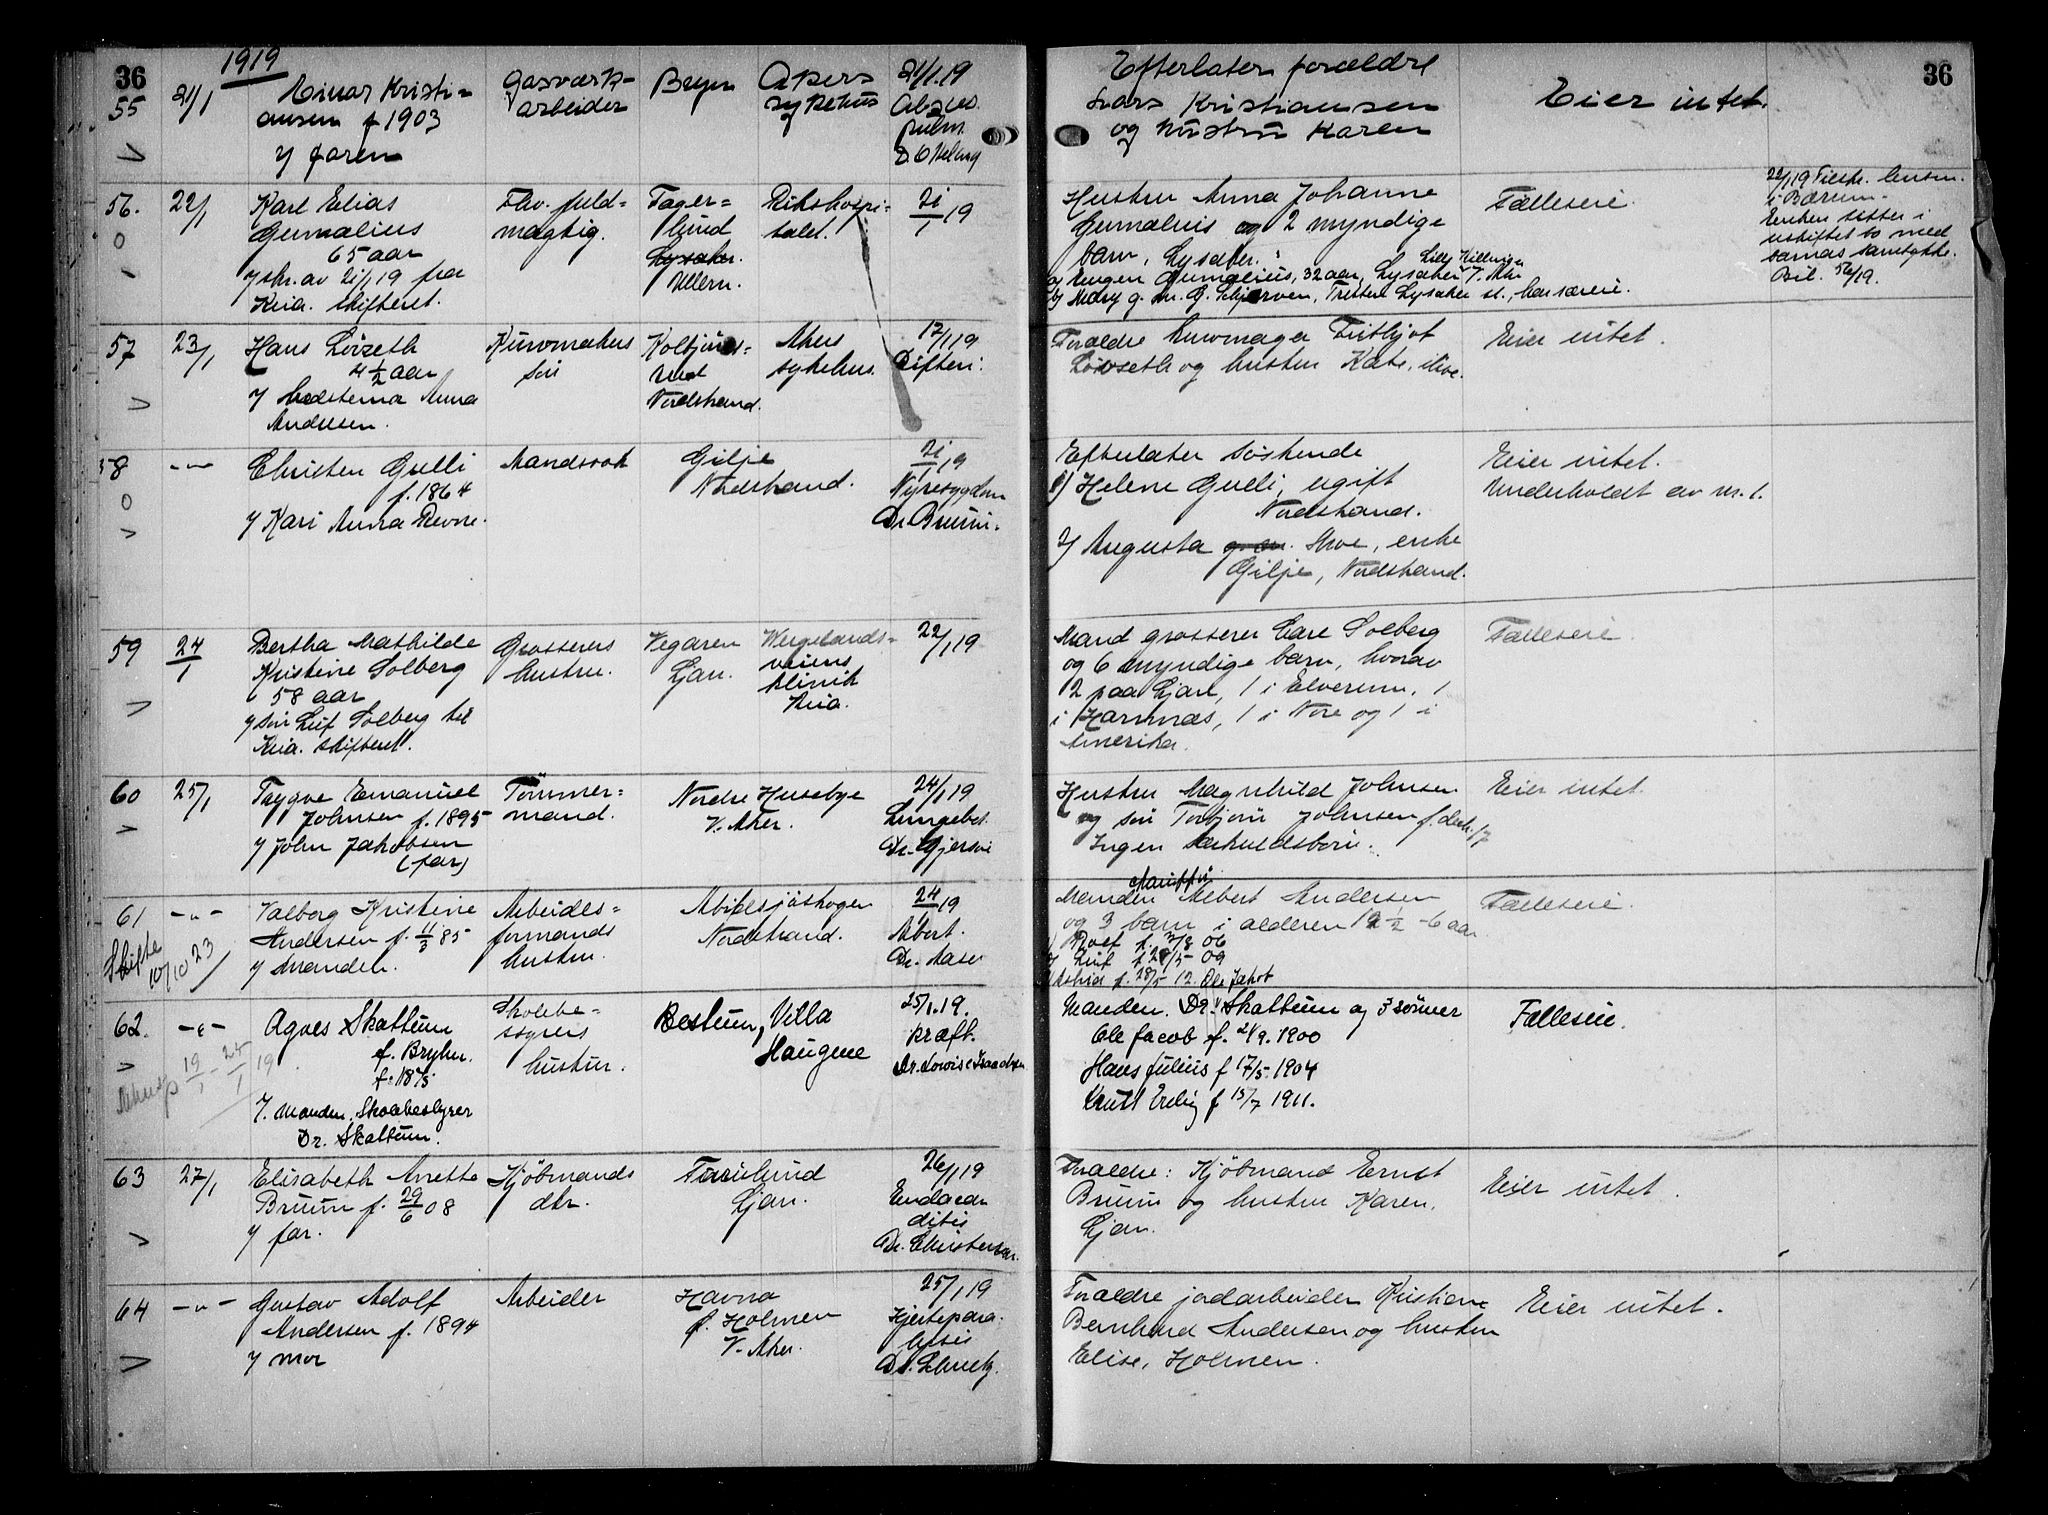 36
1919
36
55 21/1 Einar Kristi-
ansen f 1903
y faren
Gasværk-
arbeider
Bryn
Akers
sykehus
21/1.19
Absces.
pulm.
Efterlater forældre
Lars Kristiansen
og hustru Karen
Eier intet.
56. 22/1 Karl Elias
Gumælius
65 aar
y skr. av 21/1 19 fra
Kria. skifteret.
Fhv. fuld=
mægtig.
Fager=
lund
Lysaker.
Ullern.
Rikshospi-
talet.
21/1 19
Hustru Anna Johanne
Gumælius og 2 myndige
barn, Lysaker.
a) Eugen Gumælius, 32 aar, Lysaker
b) Mary g. m. G. Schjerven, Lysaker st., har særeie.
Fælleseie.
22/1 19
i Bærum.
Enken sitter i
uskiftet bo med
barnas samtykke.
Bil. 56/19.
57 23/1 Hans Lövseth
4 1/2 aar
y Anna
Andersen.
Kurvmakers
sön
Nordstrand.
Akers
sykehus.
17/1 19
Difteri.
Forældre kurvmager Frithjof
Lövseth og hustru Kate, ilive.
Eier intet.
58 -"- Christen Gulli
f. 1864
y Kari Anna Revne.
Mandsrok
Gilje
Nordstrand.
21/1 19
Nyresygdom
Dr. Bruun.
Efterlater söskende
1) Helene Gulli, ugift
Nordstrand.
2) Augusta g. m. Moe, enke
Gilje, Nordstrand.
Eier intet.
Underholdt av nr. 1.
59 24/1 Bertha Mathilde
Kristine Solberg
58 aar
y sön Leif Solberg til
Kria. skifteret.
Grosserers
hustru.
Vegaren
Ljan.
Wergelands-
veiens
klinik
Kria.
22/1 19
Mand grosserer Carl Solberg
og 6 myndige barn, hvorav
2 paa Ljan, 1 i Elverum, 1
i Harnnæs, 1 i Nore og 1 i
Amerika.
Fælleseie.
60 25/1 Trygve Emanuel
Johnsen f. 1895
y John Jakobsen
(far)
Tömmer=
mand.
Nordre Huseby
V. Aker.
24/1 19
Lungebet.
Dr. Gjersöe
Hustru Magnhild Johnsen
og sön Torbjörn Johnsen
Ingen særkuldsbörn.
Eier intet.
61 -"- Valborg Kristine
Andersen f. 11/3 85
y manden.
Skifte
10/10 23
Arbeids=
formands
hustru.
Abildsjöskogen
Nordstrand.
24/1 19
Abort.
Dr. Aaser
Manden Albert Andersen
og 3 barn i alderen 12 1/2 - 6 aar.
Rolf f. 3/8 06
Leif f. 09
f. 28/5 12. Ole Jakob
Fælleseie.
62. -"- Agnes Skattum
f. Bryhn.
f. 1875
y. Manden, Skolebestyrer
Dr. Skattum.
Skolebe-
styrers
hustru.
Bestum, Villa
Haugene
25/1.19.
kræft.
Dr. Lovise Isaachsen
Manden. Dr. Skattum og 3 sönner
Ole Jacob f. 21/9. 1900
Hans Julius f 17/5. 1904
Knut Erling f 15/7 1911.
Fælleseie.
63 27/1 Elisabeth Anette
Bruun f. 29/6 08
y far.
Kjöbmands
dtr.
Furulund
Ljan.
26/1 19
Endocar
ditis
Dr. Christensen.
Forældre: Kjöbmand Ernst
Bruun og hustru Karen,
Ljan.
Eier intet.
64 -"- Gustav Adolf
Andersen f. 1894
y mor
Arbeider
Havna
p. Holmen
V. Aker.
25/1 19
Hjertepara-
lysis
Forældre jordarbeider Kristian
Bernhard Andersen og hustru
Elise, Holmen.
Eier intet.